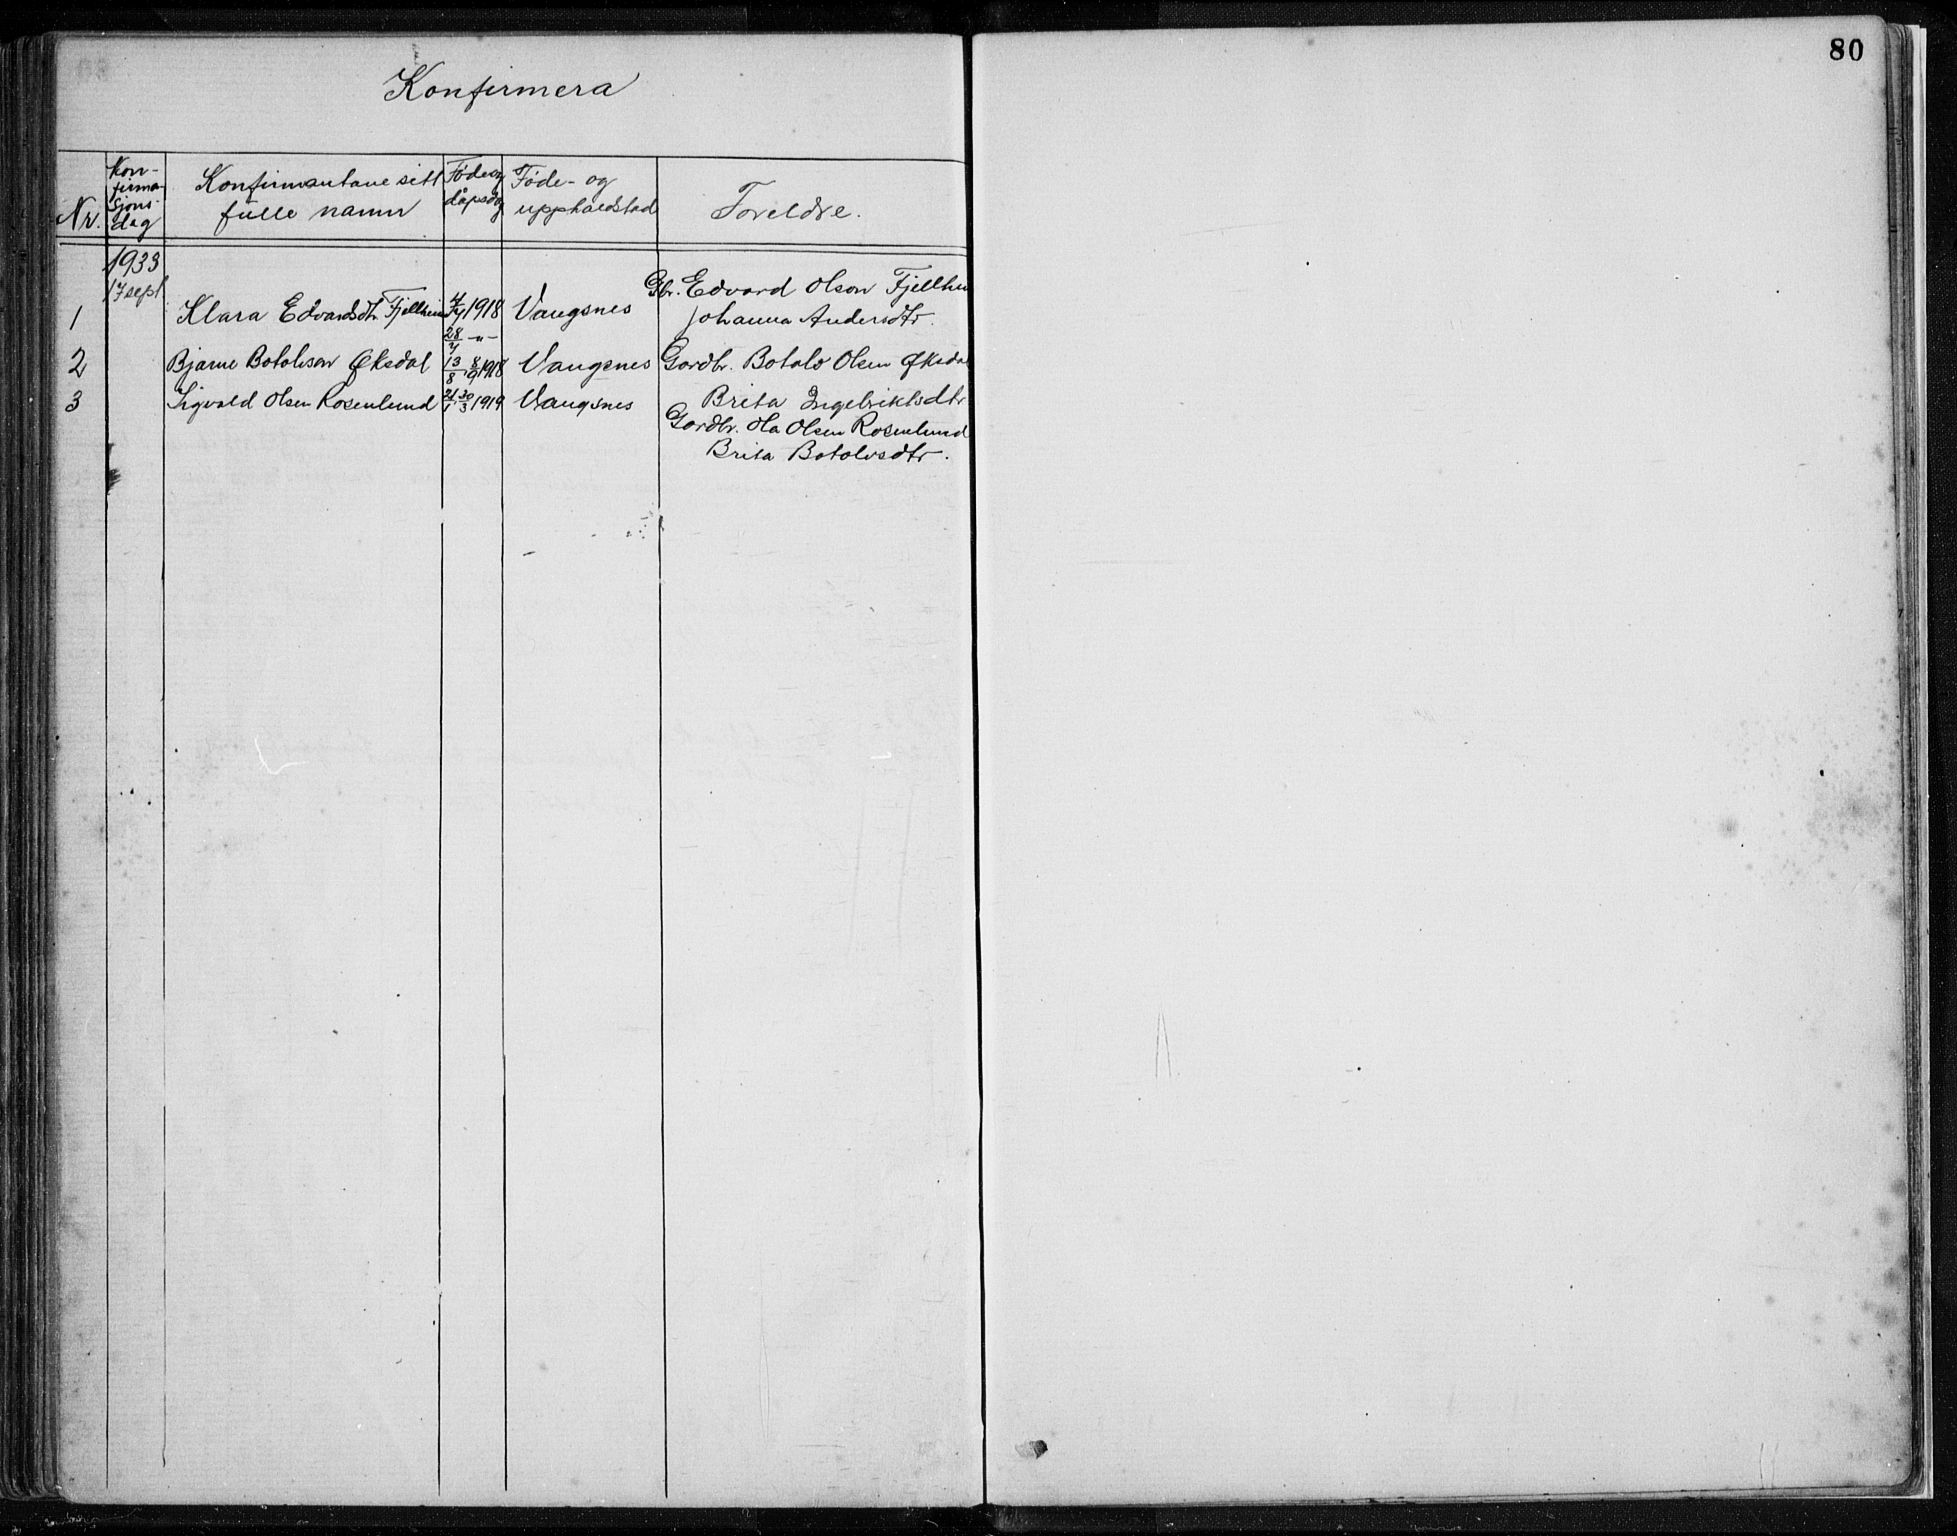 80
Konfirmera
Nr. Kon-firma-sjons-dag Konfirmantane sitt fulle namn Føde og dåpsdag Føde- og uppholdstad Foreldre.
1933
17 sept
1 Klara Edvardsdtr Fjellheim 1918 Vangsnes Gbr. Edvard Olson Fjellheim
28/4 -"- Johanna Andersdtr.
2 Bjarne Botolvson Øksdal 13/8 8/9 1918 Vangsnes Gardbr. Botolv Olsen Øksdal
3 Sigvald Olsen Rosenlund 30/3 1919 Vangsnes Brita Ingebriktsdtr
Gardbr. Ola Olsen Rosenlund
Brita Botolvsdtr.